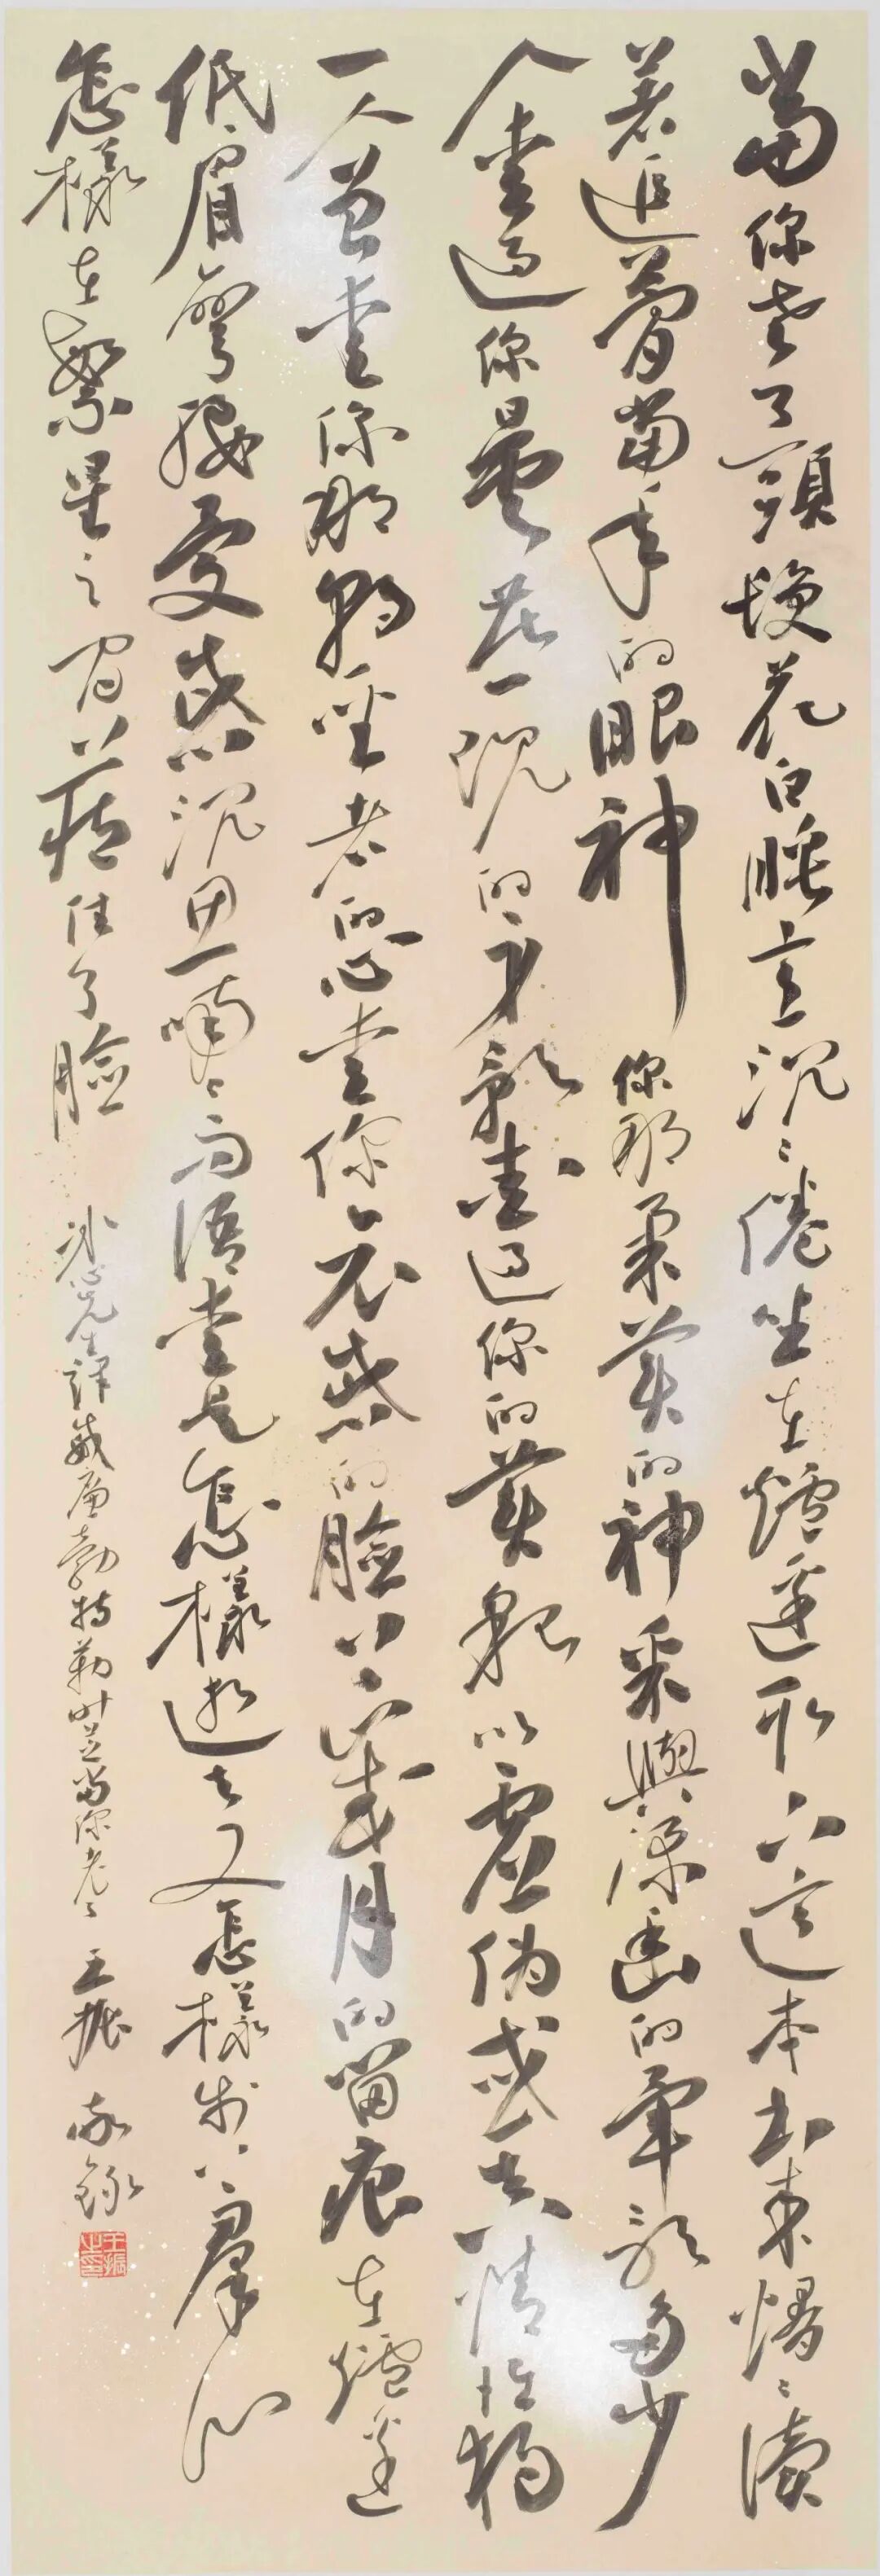 當你老了頭髮花白睡意沉々倦坐在爐邊取下這本書來慢々讀
著追夢當年的眼神你那柔美的神采與深幽的暈影多少
人愛過你曇花一現的身影愛過你的美貌以虛偽或真情惟獨
一人曾愛你那朝聖者的心愛你哀慼的臉上歲月的留痕在爐邊
低眉彎腰憂慼沉思喃々而語愛是怎樣逝去又怎樣步上群山
怎樣在繁星之間藏住了臉 冰心先生譯威廉勃特勒叶芝當你老了 王振 敬錄
王振之印